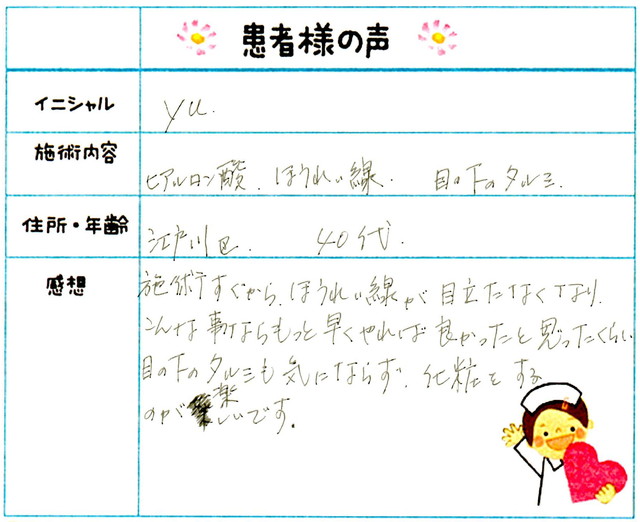 患者様の声
イニシャル
yu.
施術内容
ヒアルロン酸、ほうれい線. 目の下のタルミ.
住所・年齢
江戸川区. 40代.
感想
施術すぐから、ほうれい線が目立たなくなり、
こんな事ならもっと早くやれば良かったと思ったくらい
目の下のタルミも気にならず、化粧をする
のが楽しいです。